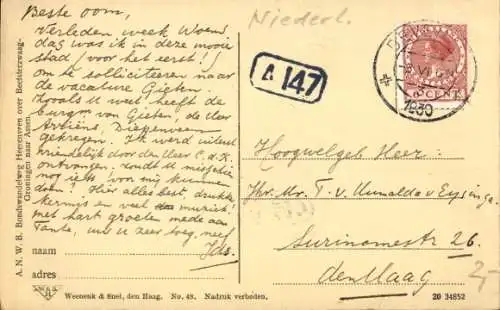 Niederl.
Beste oom,
Verleden week Woens
dag was ik in deze mooie
stad (voor het eerst!)
om te solliciteeren naar
de vacature Gieten.
Zooals U weet, heeft de
burgm van Gieten, de Heer
gekregen. Ik werd uiterst
vriendelijk door den Heer C. d. K.
ontvangen. zoudt U misschien
nog iets voor mij kunnen
doen? Hier alles best, drukke
kermis en veel muziek!
met hart. groeten mede aan
Tante, uw U zeer toeg. neef
Ids.
naam
adres
A 147
DE
1930
5 CENT
Hoogwelgeb Heer:
Jhr. Mr. T. v. Humalda v Eysinga
Surinamestr 26.
den Haag
2,-
A.N.W.B. Bondswandelweg Heerenveen over Beetsterzwaag-
Groningen naar Assen.
Weenenk & Snel, den Haag. No. 48. Nadruk verboden.
20 34852